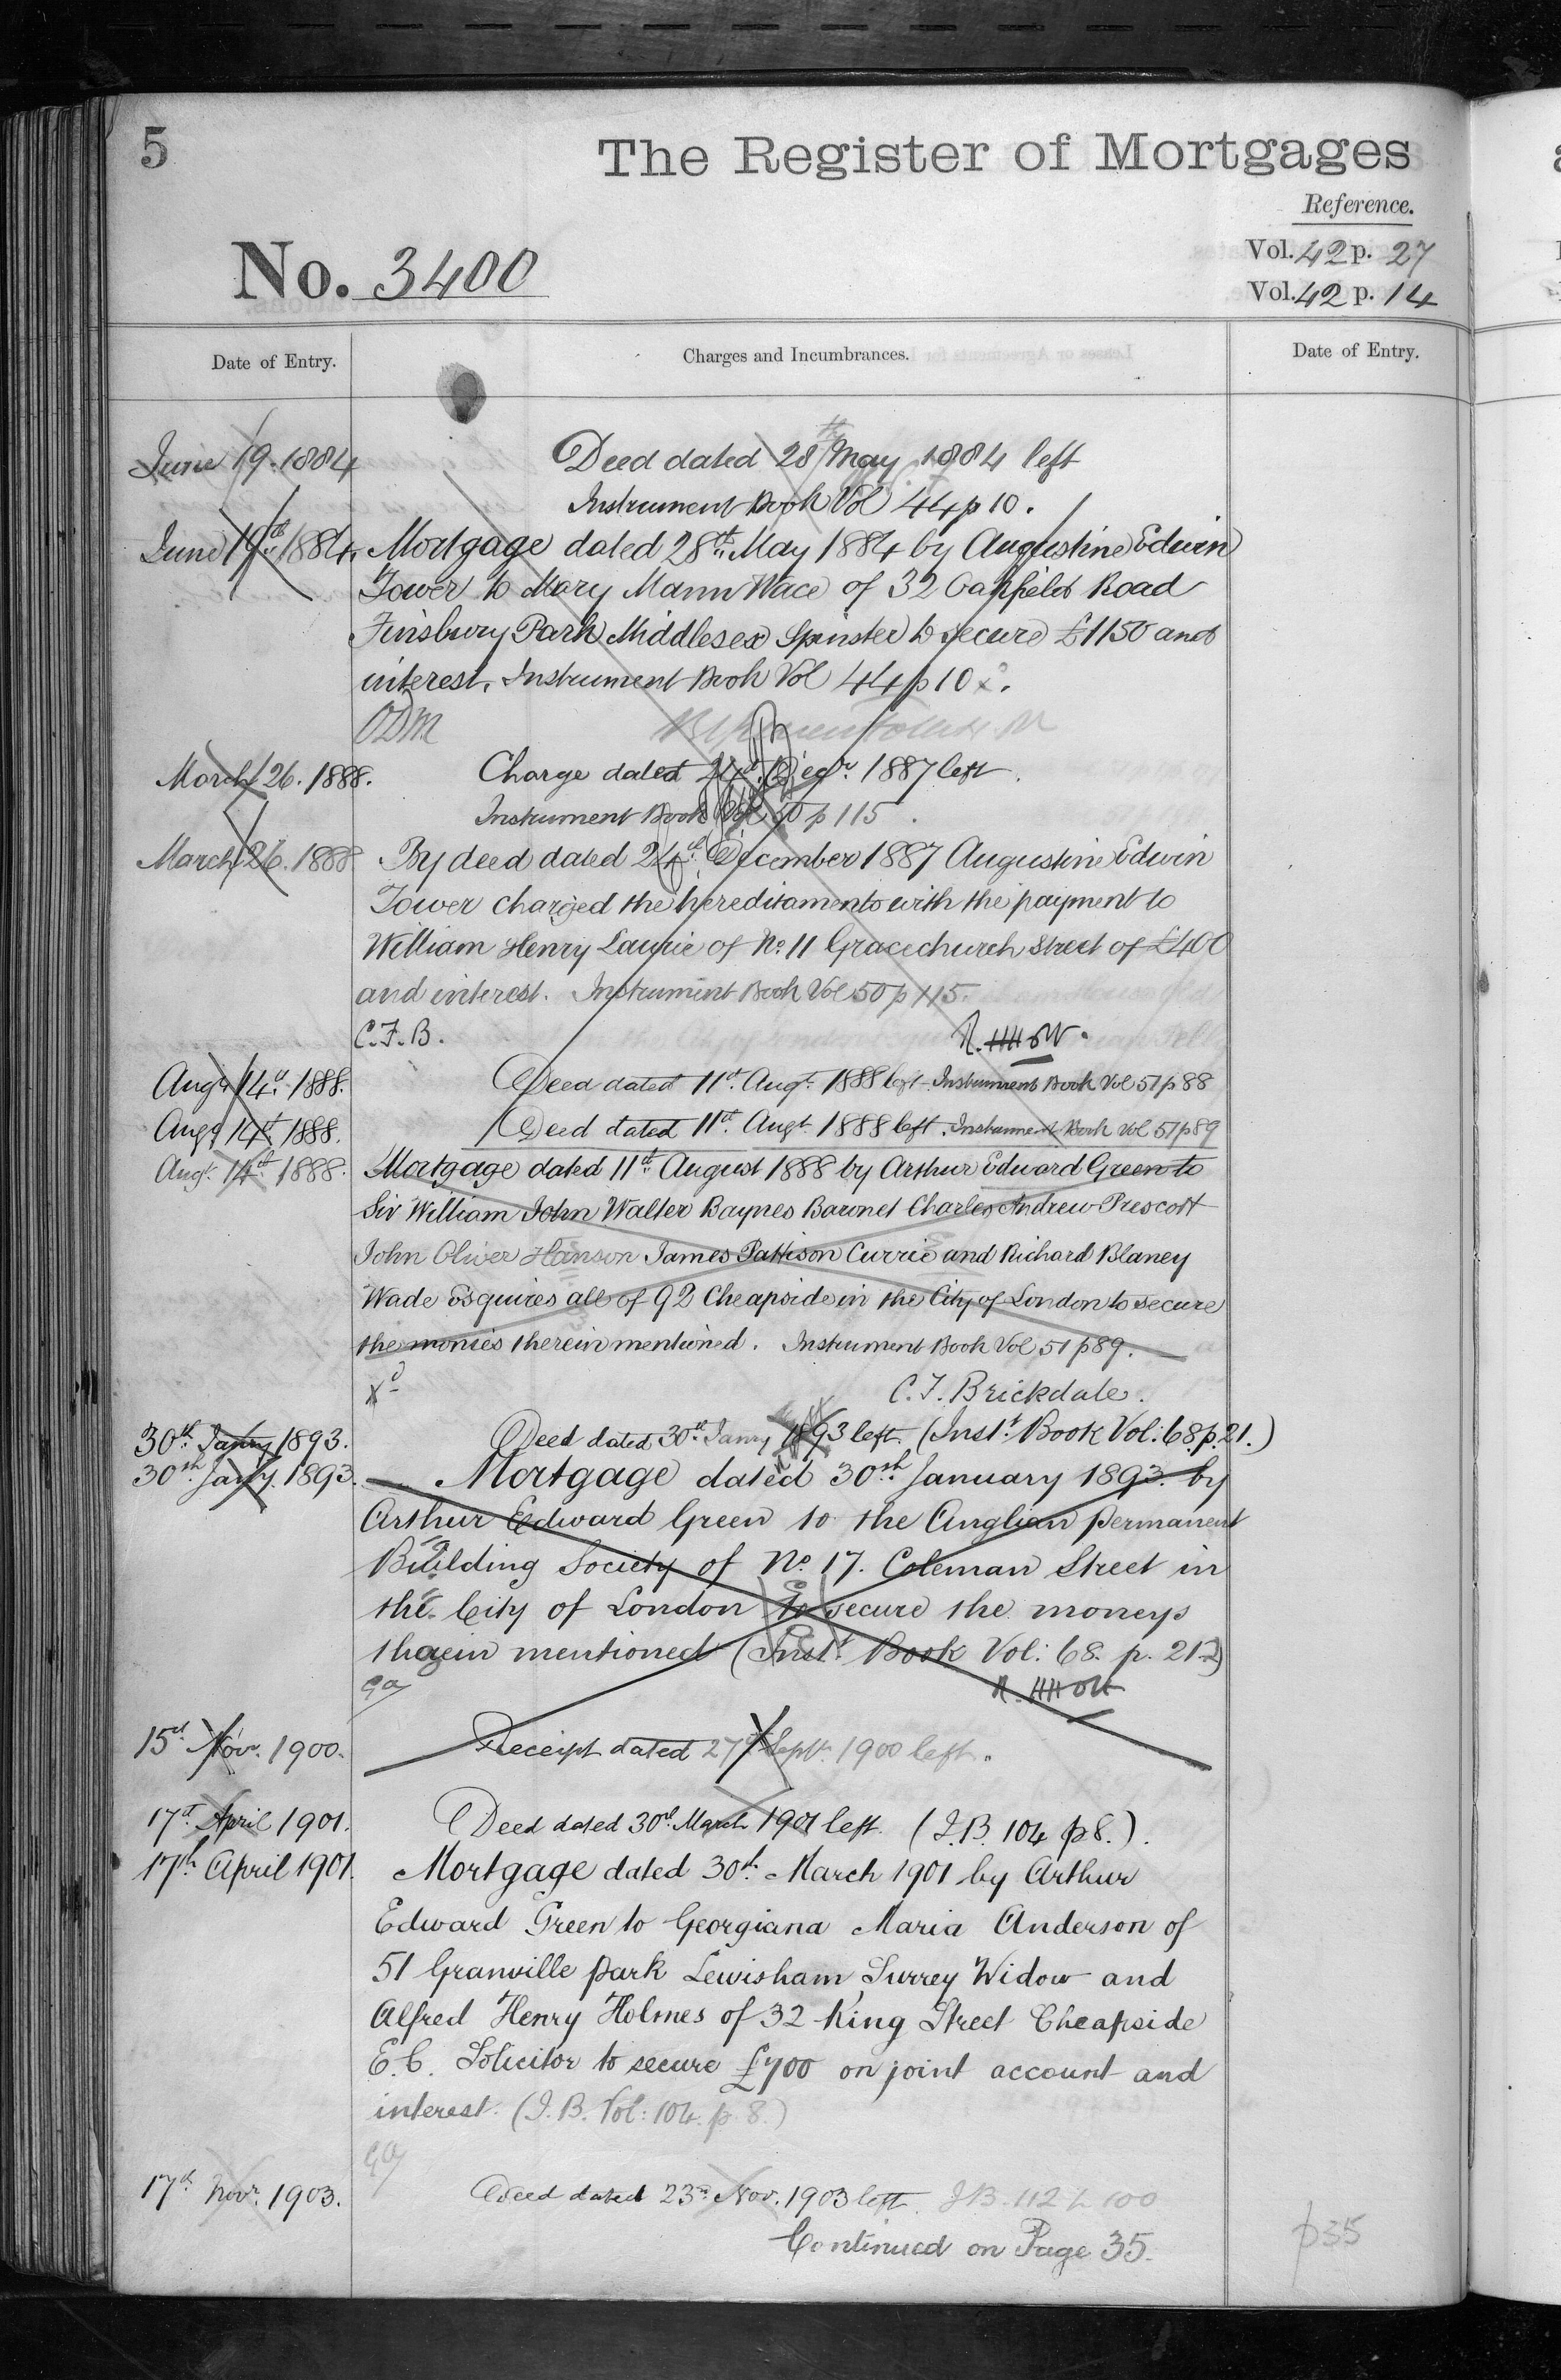 5
The Register of Mortgages
Reference.
No. 3400
Vol. 42 p. 27
Vol. 42 p. 14
Date of Entry.
Charges and Incumbrances.
Date of Entry.
June 19. 1884
Deed dated 28th May 1884 left
Instrument Book Vol 44 p 10.
June 19th 1884. Mortgage dated 28th May 1884 by Augustine Edwin
Tower to Mary Mann Wace of 32 Oakfield Road
Finsbury Park Middlesex Spinster to secure £1150 and
interest. Instrument Book Vol 44 p 10
March 26. 1888.
Charge dated 24th Decr. 1887 left.
Instrument Book Vol 50 p 115.
March 26. 1888
By deed dated 24th December 1887 Augustine Edwin
Tower charged the hereditaments with the payment to
William Henry Laurie of No. 11 Gracechurch Street of £400
and interest. Instrument Book Vol 50 p 115.
C.F.B.
Augt 14th 1888.
Deed dated 11th Augt. 1888 left Instrument Book Vol 51 p 88
Augt 14th 1888.
Deed dated 11th Augt. 1888 left. Instrument Book Vol 51 p 89
Augt. 14th 1888. Mortgage dated 11th August 1888 by Arthur Edward Green to
Sir William John Walter Baynes Baronet Charles Andrew Prescott
John Oliver Hanson James Pattison Currie and Richard Blaney
Wade Esquires all of 92 Cheapside in the City of London to secure
the monies therein mentioned. Instrument Book Vol 51 p 89.
C.F. Brickdale.
30th Janry 1893.
Deed dated 30th Janry 1893 left. (Inst. Book Vol: 68 p. 21.)
30th Janry. 1893.
Mortgage dated 30th January 1893. by
Arthur Edward Green to the Anglian Permanent
Building Society of No. 17. Coleman Street in
the City of London to secure the moneys
therein mentioned (Inst. Book Vol: 68. p. 21.)
15th Novr. 1900.
Receipt dated 27th Septr. 1900 left.
17th April 1901.
Deed dated 30th March 1901 left. (I.B. 104 p 8.).
17th April 1901.
Mortgage dated 30th March 1901 by Arthur
Edward Green to Georgiana Maria Anderson of
51 Granville Park Lewisham, Surrey Widow and
Alfred Henry Holmes of 32 King Street Cheapside
E.C. Solicitor to secure £700 on joint account and
interest. (I.B. Vol: 104. p. 8.)
17th Novr. 1903.
Deed dated 23rd Nov. 1903 left. I.B. 112 p 100
Continued on Page 35.
p 35